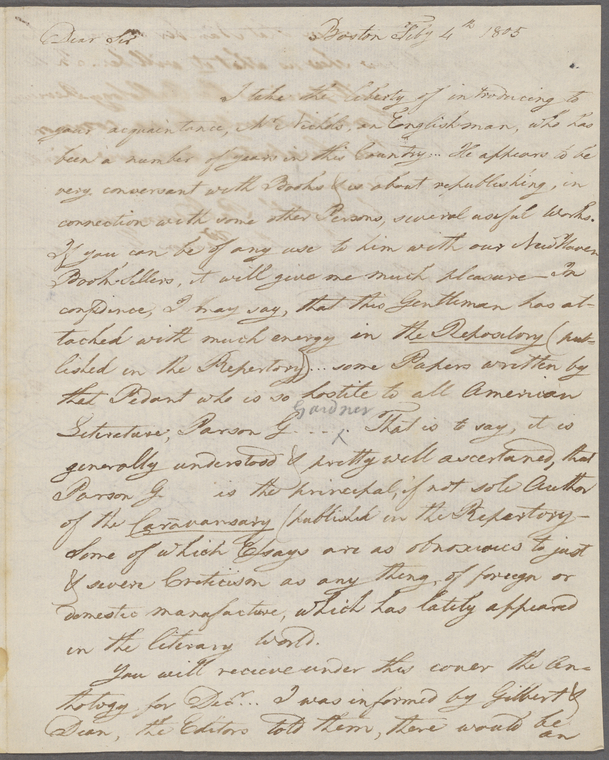 Dear Sir Boston Feby 4th 1805
I take the liberty of introducing to
your acquaintance, Mr Fields, an Englishman, who has
been a number of years in this Country... He appears to be
very conversant with Books & is about republishing, in
connection with some other Persons, several useful Works.
If you can be of any use to him with our New Haven
Booksellers, it will give me much pleasure— In
confidence, I may say, that this Gentleman has at-
tached with much energy in the Repository (pub-
lished in the Repertory)... some Papers written by
that Pedant who is so hostile to all American
Gardner
Literature, Parson G..... That is to say, it is
generally understood & pretty well ascertained, that
Parson G. is the principal, if not sole Author
of the Caravansary (published in the Repertory—
Some of which Essays are as obnoxious to just
& severe Criticism as any thing, of foreign or
domestic manufacture, which has lately appeared
in the literary World.
You will recieve under this cover the An-
thology for Decr... I was informed by Gilbert &
Dean, the Editors told them, there would be
an